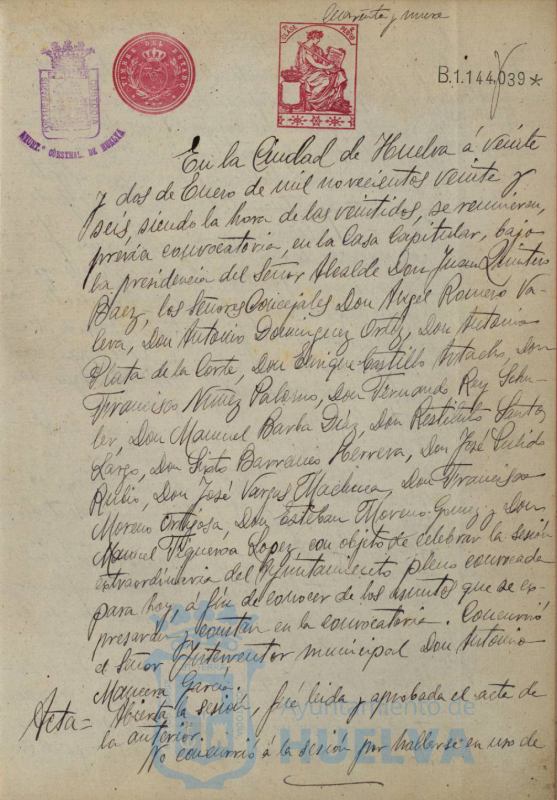 Cuarenta y nueve
TIMBRE DEL ESTADO
7ª CLASE
B.1.144,039*
AYUNT.º CONSTNAL. DE HUELVA
En la Ciudad de Huelva á veinte
y dos de Enero de mil novecientos veinte y
seis, siendo la hora de las veintidos, se reunieron,
prévia convocatoria, en la Casa Capitular, bajo
la presidencia del Señor Alcalde Don Juan Quintero
Baez, los Señores Concejales Don Angel Romero Va-
leva, Don Antonio Dominguez Ortiz, Don Antonio
Plata de la Corte, Don Enrique Castillo Artacho, Don
Francisco Nuñez Palomo, Don Fernando Rey Schu-
ler, Don Manuel Barba Díaz, Don Restituto Santos
Largo, Don Sixto Barranco Herrera, Don José Pulido
Rubio, Don José Vargas Machuca, Don Francisco
Moreno Ortijosa, Don Esteban Moreno Gomez y Don
Manuel Figueroa Lopez con objeto de celebrar la sesión
extraordinaria del Ayuntamiento pleno convocada
para hoy, á fin de conocer de los asuntos que se ex-
presarán y constan en la convocatoria. Concurrió
el Señor Interventor municipal Don Antonio
Mancera Garcia.
Acta= Abierta la sesión, fué leida y aprobada el acta de
la anterior.
No concurrió á la sesión por hallarse en uso de
Ayuntamiento de
HUELVA